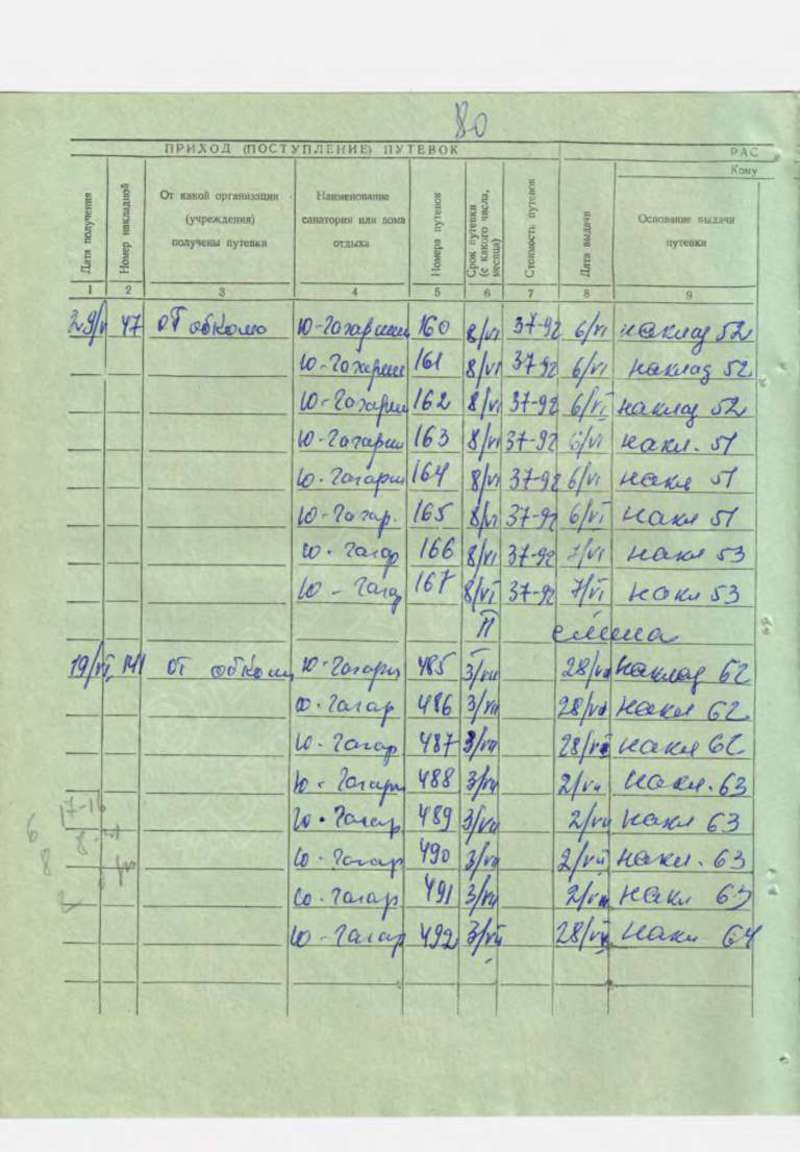 80
ПРИХОД (ПОСТУПЛЕНИЕ) ПУТЕВОК РАС
Кому
Дата получения
Номер накладной
От какой организации (учреждения) получены путевки
Наименование санатория или дома отдыха
Номера путевок
Срок путевки (с какого числа, месяца)
Стоимость путевок
Дата выдачи
Основание выдачи путевки
1 2 3 4 5 6 7 8 9
29/V 47 от обкома Ю-Гагарин 160 8/VI 37-92 6/VI наклад 52
Ю-Гагарин 161 8/VI 37-92 6/VI наклад 52
Ю-Гагарин 162 8/VI 37-92 6/VI наклад 52
Ю-Гагарин 163 8/VI 37-92 6/VI накл. 51
Ю-Гагарин 164 8/VI 37-92 6/VI накл 51
Ю-Гагар. 165 8/VI 37-92 6/VI накл 51
Ю-Гагар 166 8/VI 37-92 7/VI накл 53
Ю-Гагар 167 8/VI 37-92 7/VI накл 53
II смена
19/VI 141 от обкома Ю-Гагарин 485 3/VII 28/VI наклад 62
Ю-Гагар 486 3/VII 28/VI накл 62
Ю-Гагар 487 3/VII 28/VI накл 62
Ю-Гагари 488 3/VII 2/VII накл. 63
Ю-Гагар 489 3/VII 2/VII накл 63
Ю-Гагар 490 3/VII 2/VII накл. 63
Ю-Гагар 491 3/VII 2/VII накл 63
Ю-Гагар 492 3/VII 28/VI накл 64
17-16
6
8